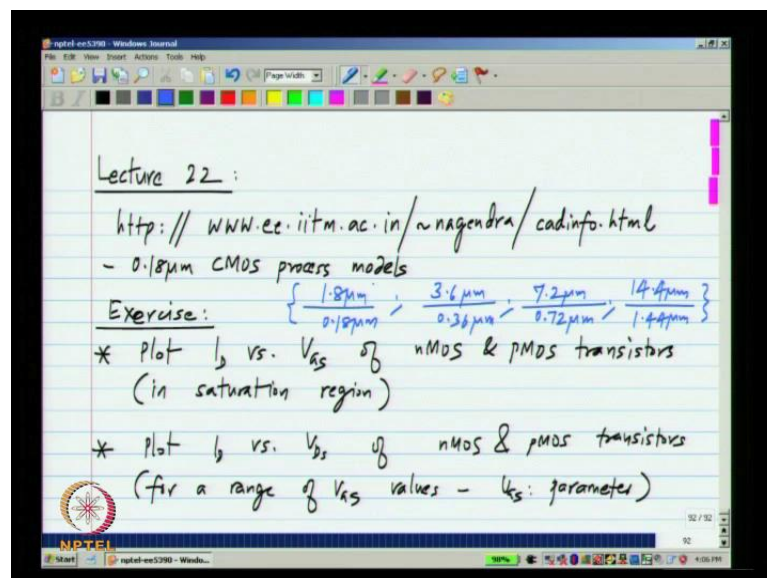 nptel-ee5390 - Windows Journal
File Edit View Insert Actions Tools Help
Page Width
Lecture 22 :
http:// www.ee.iitm.ac.in/~nagendra/cadinfo.html
- 0.18μm CMOS process models
{ 1.8μm/0.18μm , 3.6μm/0.36μm , 7.2μm/0.72μm , 14.4μm/1.44μm }
Exercise:
* Plot ID vs. VGS of nMOS & pMOS transistors
(in saturation region)
* Plot ID vs. VDS of nMOS & pMOS transistors
(for a range of VGS values - VGS: parameter)
92 / 92
92
NPTEL
Start nptel-ee5390 - Windo... 98% 4:06 PM